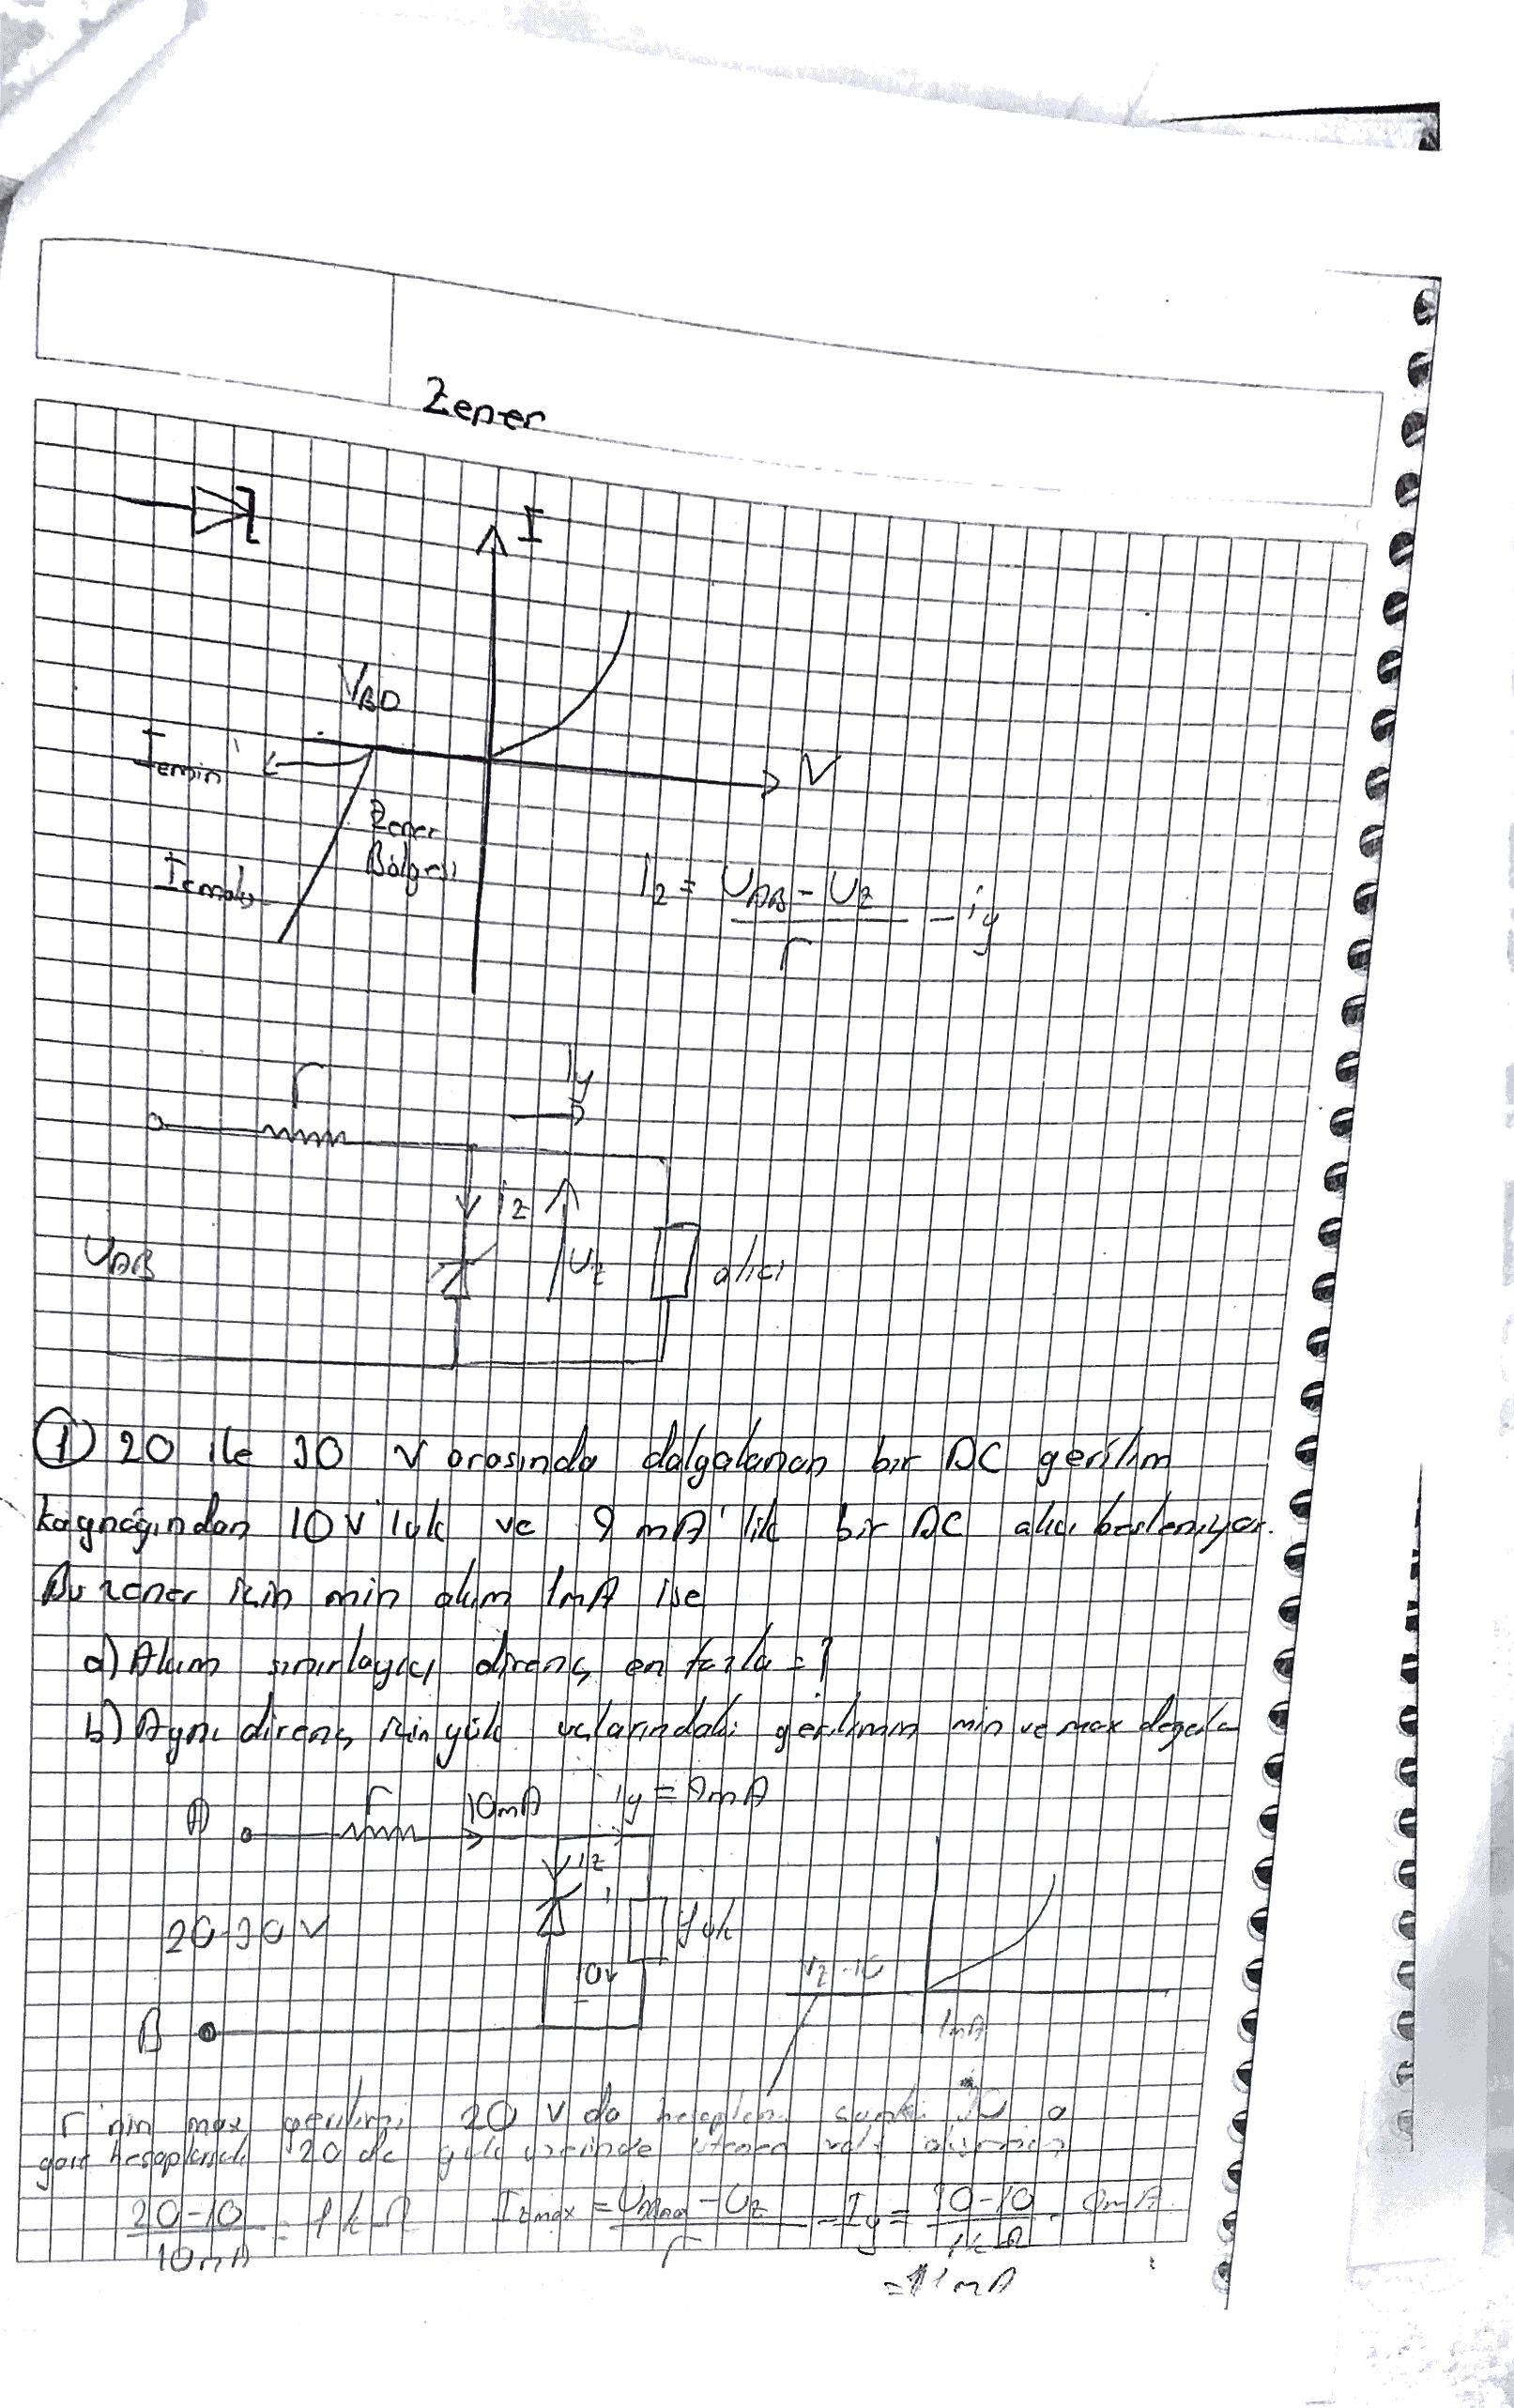 Zener
I
VBD
Izmin
V
Zener
Bölgesi
Izmax
Iz = UAB - Uz / r - iy
r
iy
iz
UAB
Uz
alıcı
① 20 ile 30 V arasında dalgalanan bir DC gerilim
kaynağından 10V'luk ve 9 mA'lik bir DC alıcı besleniyor.
Bu zener için min akım 1mA ise
a) Akım sınırlayıcı direnç en fazla = ?
b) Aynı direnç için yük uçlarındaki gerilimin min ve max değerle
A
r
10mA
iy = 9mA
iz
20-30V
yük
10V
Vz -10
B
1mA
r'nin max gerilimi 20 V da hesaplanı
göre hesaplarsak 20 de yük üzerinde istenen
20-10 / 10mA = 1kΩ
Izmax = - Uz / r - Iy = 30-10 / 1kΩ - 9mA
= 11mA